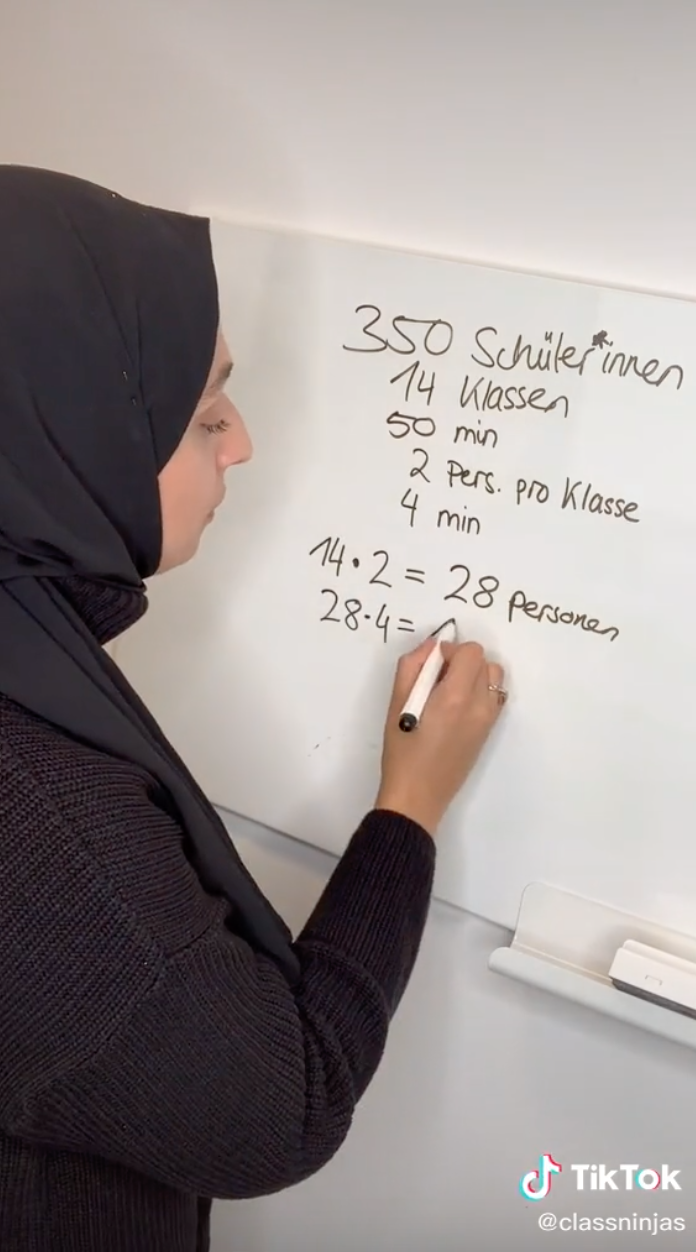 350 Schüler*innen
14 Klassen
50 min
2 Pers. pro Klasse
4 min
14·2 = 28 Personen
28·4=
TikTok
@classninjas